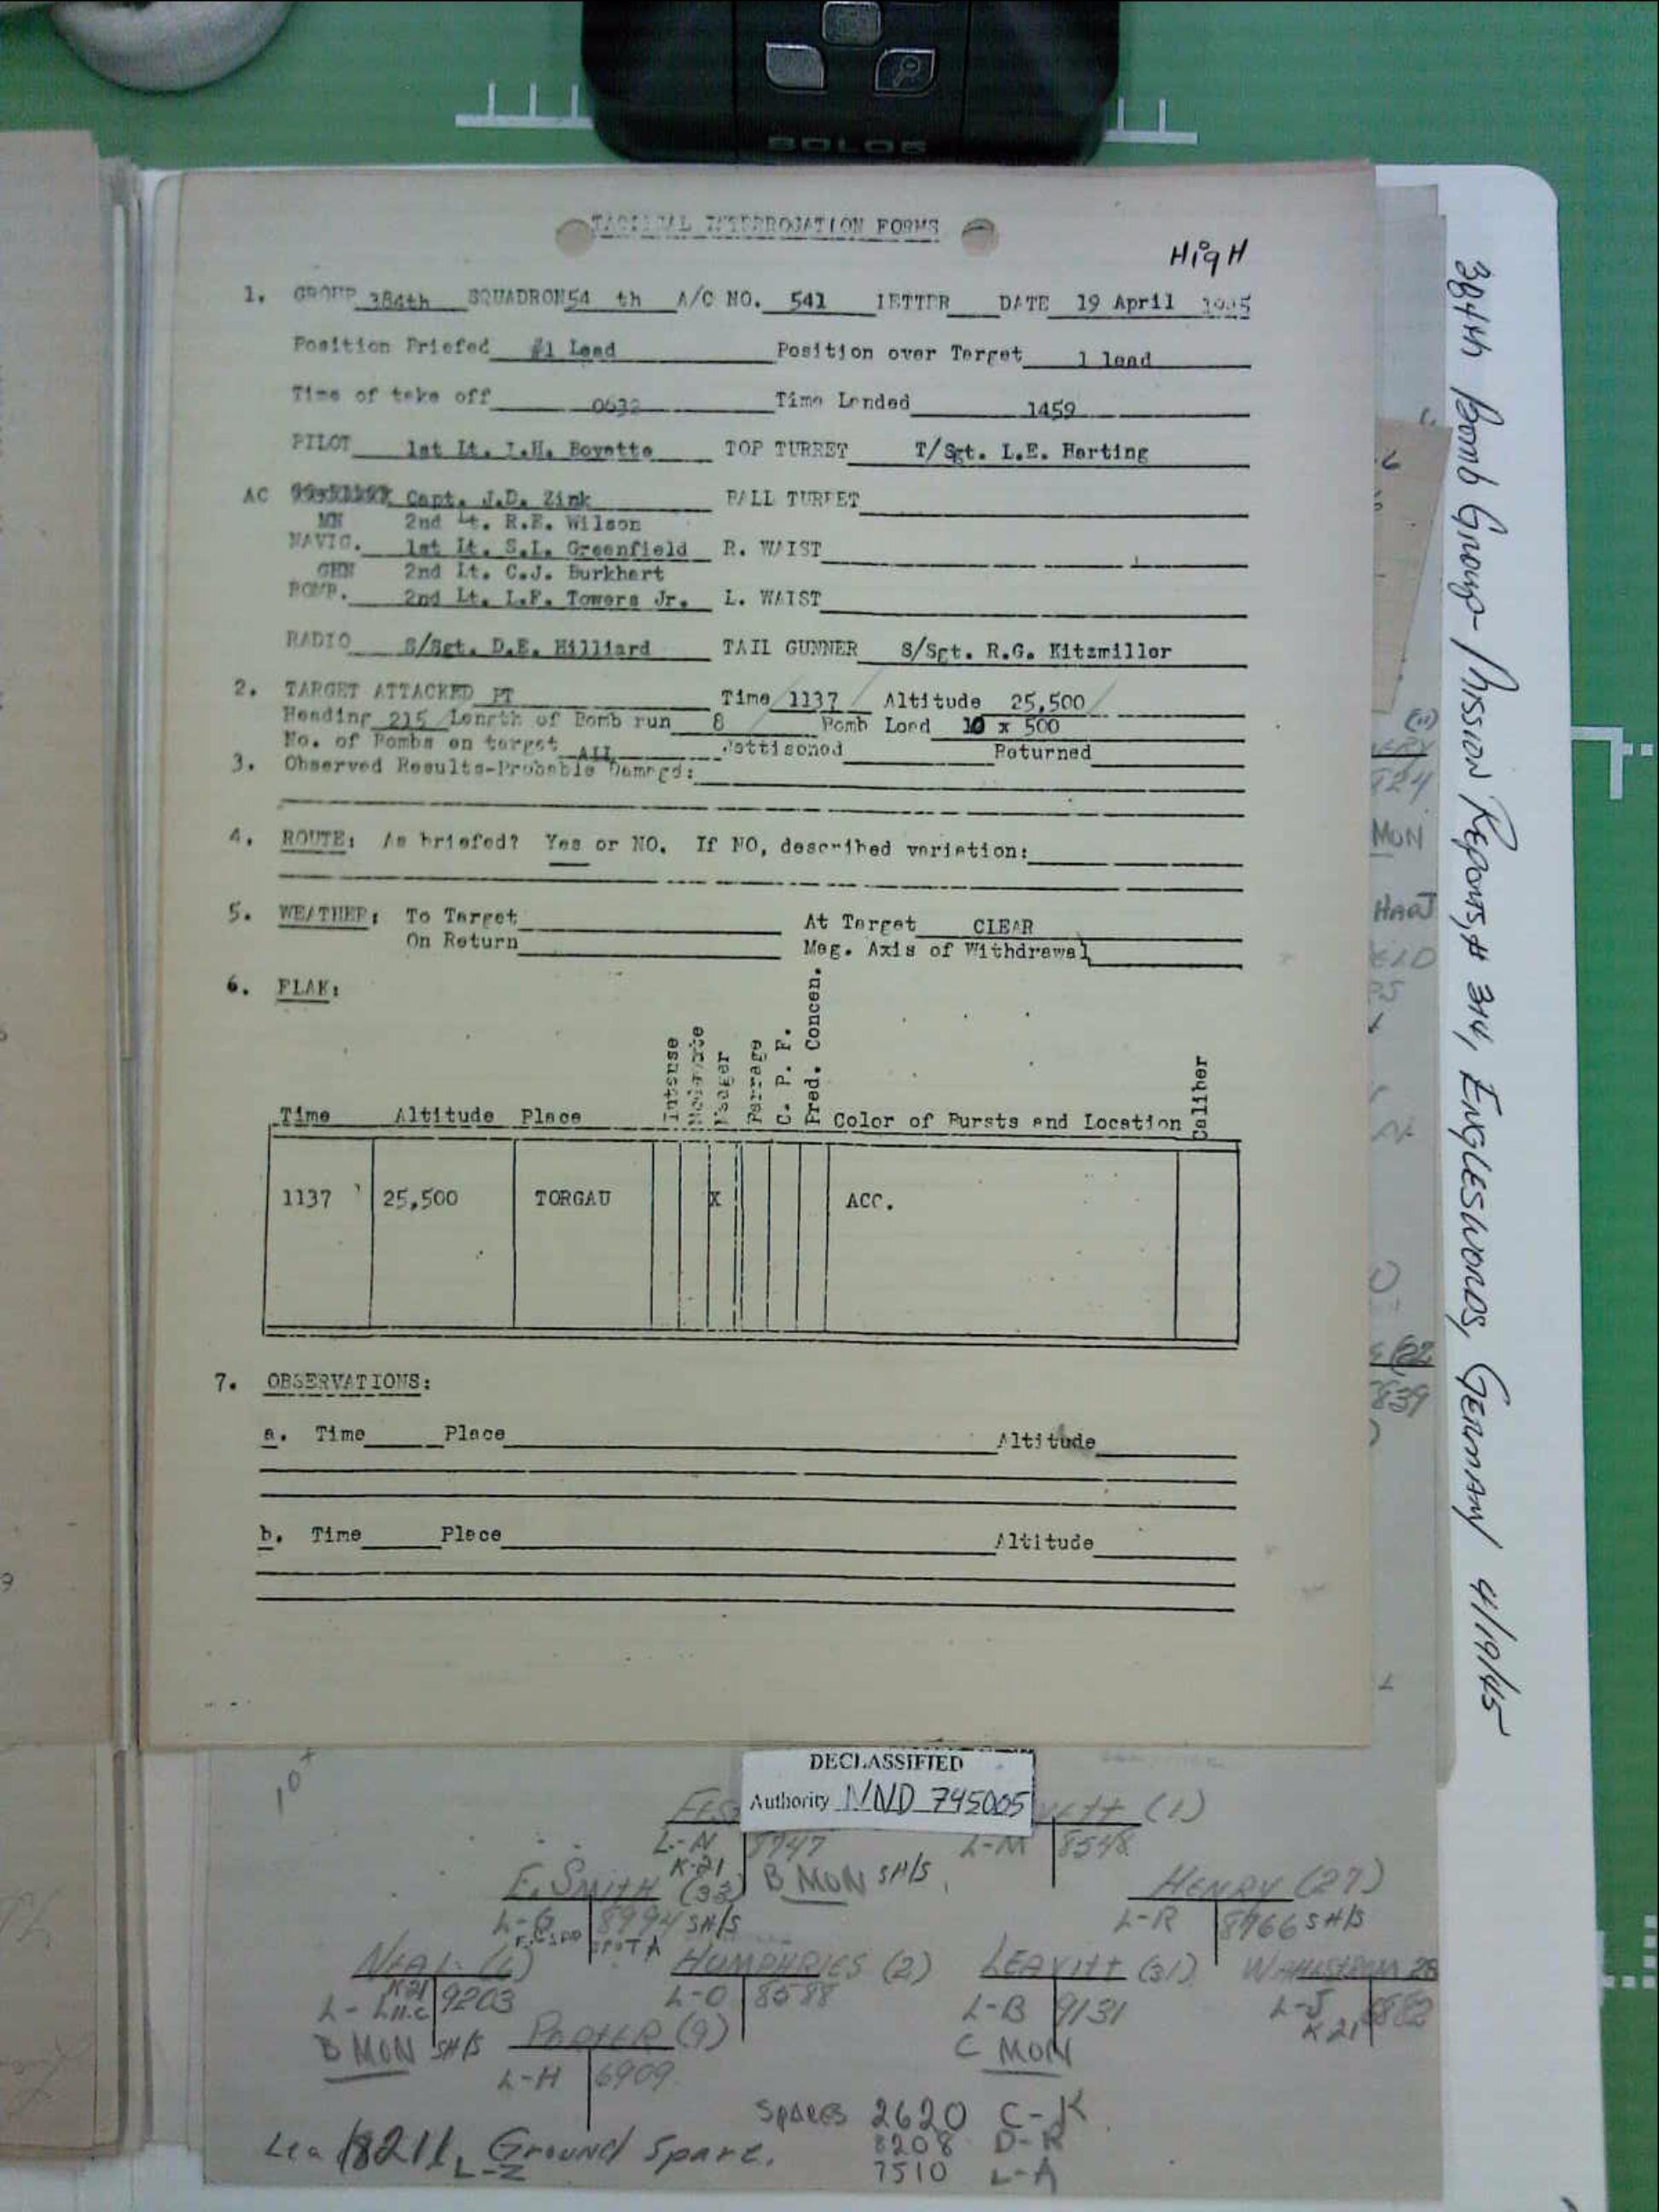 SOLOS
TACTICAL INTERROGATION FORMS
HigH
1. GROUP 384th SQUADRON 54 th A/C NO. 541 LETTER DATE 19 April 1945
Position Briefed #1 Lead Position over Target 1 lead
Time of take off 0632 Time Landed 1459
PILOT 1st Lt. I.H. Boyette TOP TURRET T/Sgt. L.E. Harting
AC Capt. J.D. Zink BALL TURRET
MN 2nd Lt. R.E. Wilson
NAVIG. 1st Lt. S.L. Greenfield R. WAIST
GHN 2nd Lt. C.J. Burkhart
BOMB. 2nd Lt. L.F. Towers Jr. L. WAIST
RADIO S/Sgt. D.E. Hilliard TAIL GUNNER S/Sgt. R.G. Kitzmiller
2. TARGET ATTACKED PT Time 1137 Altitude 25,500
Heading 215 Length of Bomb run 8 Bomb Load 10 x 500
No. of Bombs on target ALL Jettisoned Returned
3. Observed Results-Probable Damaged:
4. ROUTE: As briefed? Yes or NO. If NO, described variation:
5. WEATHER: To Target At Target CLEAR
On Return Mag. Axis of Withdrawal
6. FLAK:
Time Altitude Place Intense Moderate Meager Barrage C. P. F. Pred. Concen. Color of Bursts and Location Caliber
1137 25,500 TORGAU X ACC.
7. OBSERVATIONS:
a. Time Place Altitude
b. Time Place Altitude
384th Bomb Group - Mission Reports, # 314, Engleswords, Germany 4/19/45
MON
839
DECLASSIFIED
Authority NND 745005
10
(1)
L-N 8747 L-M 8548
K-21 B MON SH/S
E. SMITH (33) HENRY (27)
L-G 8994 SH/S L-R 8766 SH/S
SPOT A
NEAL HUMPHRIES (2) LEAVITT (31) 28
K21 9203 L-O 8588 L-B 9131 L-J 8882
K21
B MON SH/S PORTER (9) C MON
L-H 6909
Spares 2620 C-K
8208 D-R
7510 L-A
Lead 8211 L-Z Ground Spare.